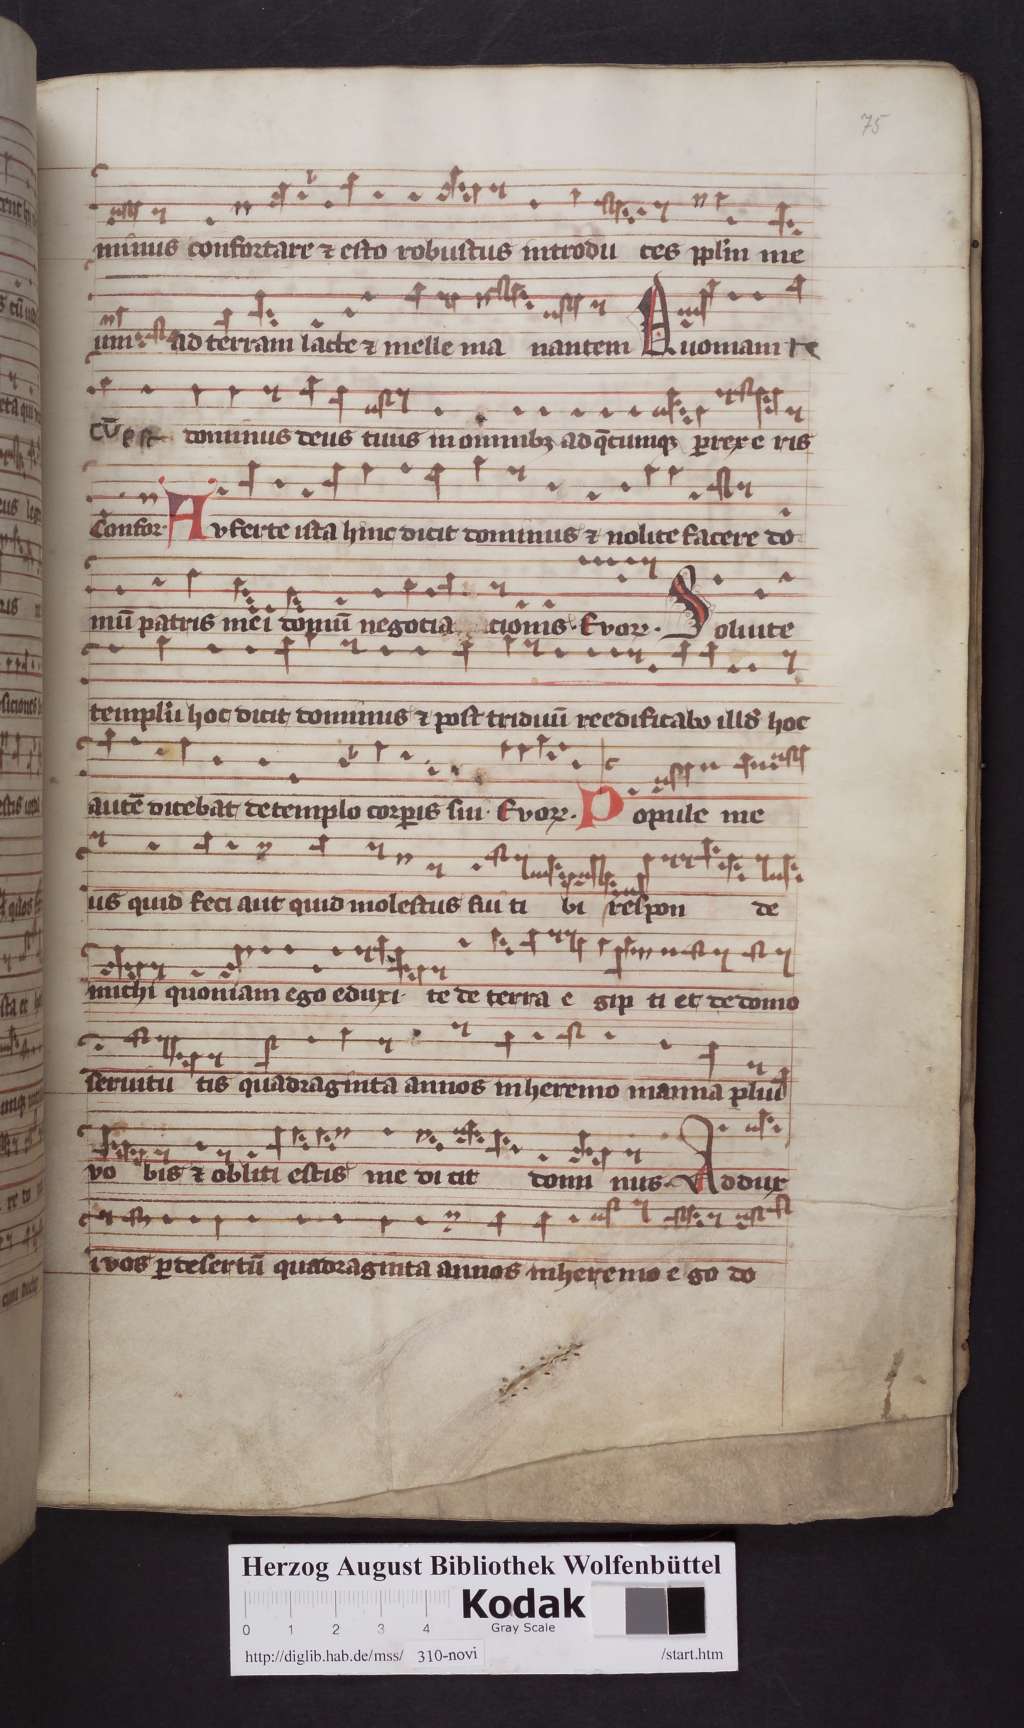 75
minus confortare ⁊ esto robustus introdu ces pplm̄ me
um ad terram lacte ⁊ melle ma nantem Quoniam te
cū est dominus deus tuus in omnibꝫ ad q̄cumqꝫ ꝑrexe ris
Confor· Auferte ista hinc dicit dominus ⁊ nolite facere do
mū patris mei domū negocia cionis· Evoꝝ· Soluite
templū hoc dicit dominus ⁊ post triduū reedificabo illd̄ hoc
autē dicebat de templo corꝑis sui· Evoꝝ· Popule me
us quid feci aut quid molestus fui ti bi respon de
michi quoniam ego eduxi te de terra e gip ti et de domo
seruitu tis quadraginta annos in heremo manna plui
vo bis ⁊ obliti estis me di cit domi nus· Addux
i vos ꝑ desertū quadraginta annos in heremo e go do
Herzog August Bibliothek Wolfenbüttel
0 1 2 3 4
Kodak
Gray Scale
http://diglib.hab.de/mss/ 310-novi /start.htm